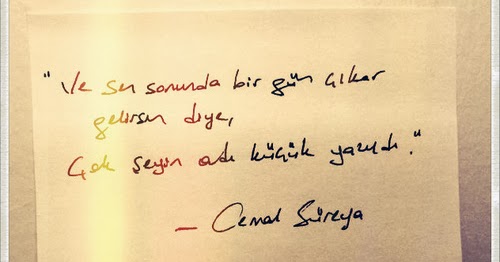 "Ve sen sonunda bir gün çıkar
gelirsin diye,
Çok şeyin adı küçük yazıldı."
— Cemal Süreya